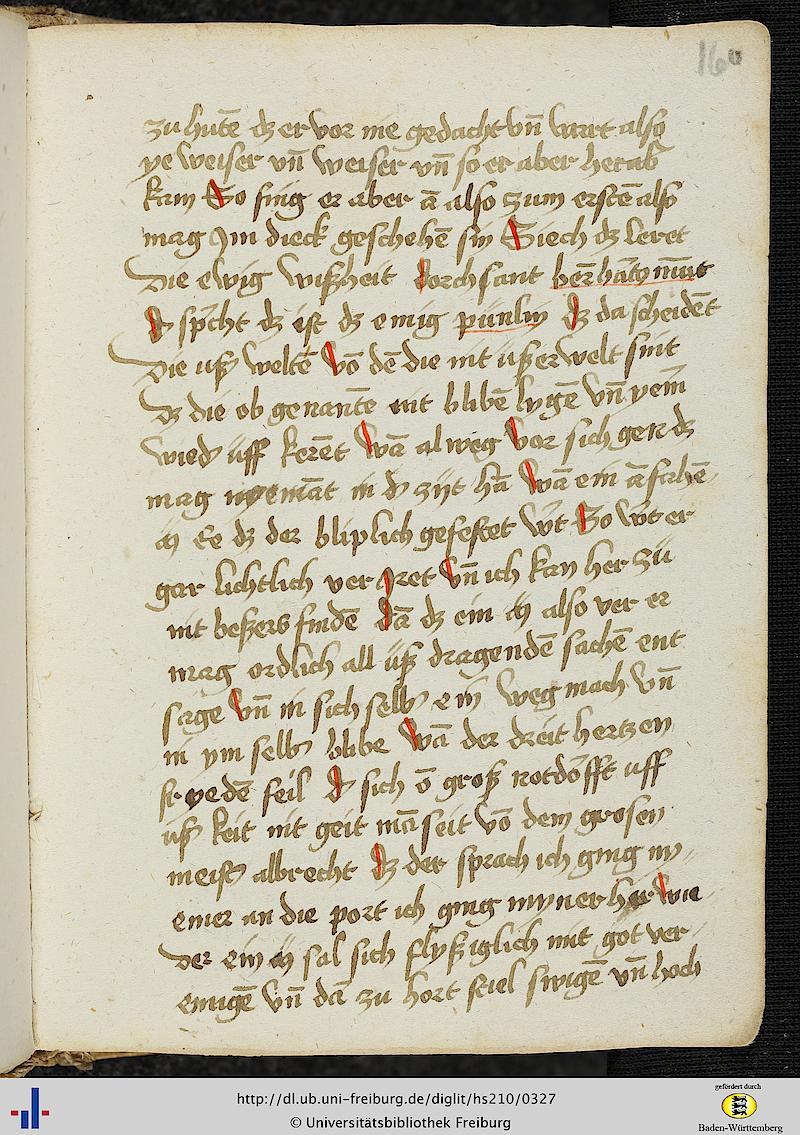 160
zu hutē dz er vor nie gedacht vn̄ wart also
ye weiser vn̄ weiser vn̄ so er aber herab
kam So fing er aber ā also zum erstē also
mag Jm dieck geschehē sin Siech dz leret
Die ewig wißheit dorch sant
spcht dz ist dz emig pūnlin dz da scheidēt
Die uß weltē vō dē die nit üß er welt sint
Dz die ob genantē nit blibē lygē vn̄ yem̄
wied' üff kerēt wā alweg vor sich gen dz
mag nyemāt in d' zijt hā wā ein āfahē
Ee dz der bliplich gefestet w't So w't er
gar lichtlich ver Jret vn̄ ich kan her zü
nit beßers findē dā dz ein also ver er
mag ordlich all üß dragendē sachē ent
sage vn̄ in sich selb' ein weg mach vn̄
in ym selb' blibe wā der dreit hertz en
yedē feil d' sich ō groß notdōfft uff
üß keit nit geit mā seit vō dem grosen
meist' albrecht dz der sprach ich ging
einer an die port ich ging myner her wie
Der ein sal sich flyßiglich mit got ver
einigē vn̄ dā zu hort stil swigē vn̄ hoch
http://dl.ub.uni-freiburg.de/diglit/hs210/0327
© Universitätsbibliothek Freiburg
gefördert durch
Baden-Württemberg